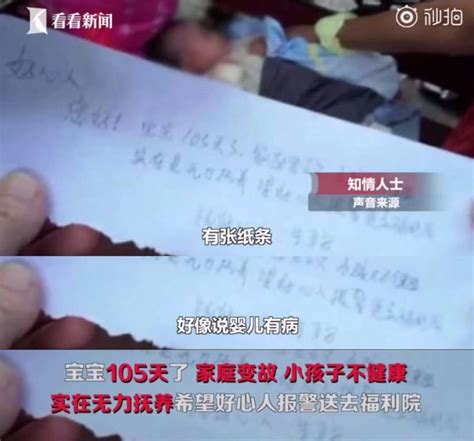 看看新闻
秒拍
好心人
您好！宝宝105天了，家庭变故
实在是无力抚养 望好心人报警
知情人士
声音来源
有张纸条
好像说婴儿有病
宝宝105天了 家庭变故 小孩子不健康
实在无力抚养希望好心人报警送去福利院